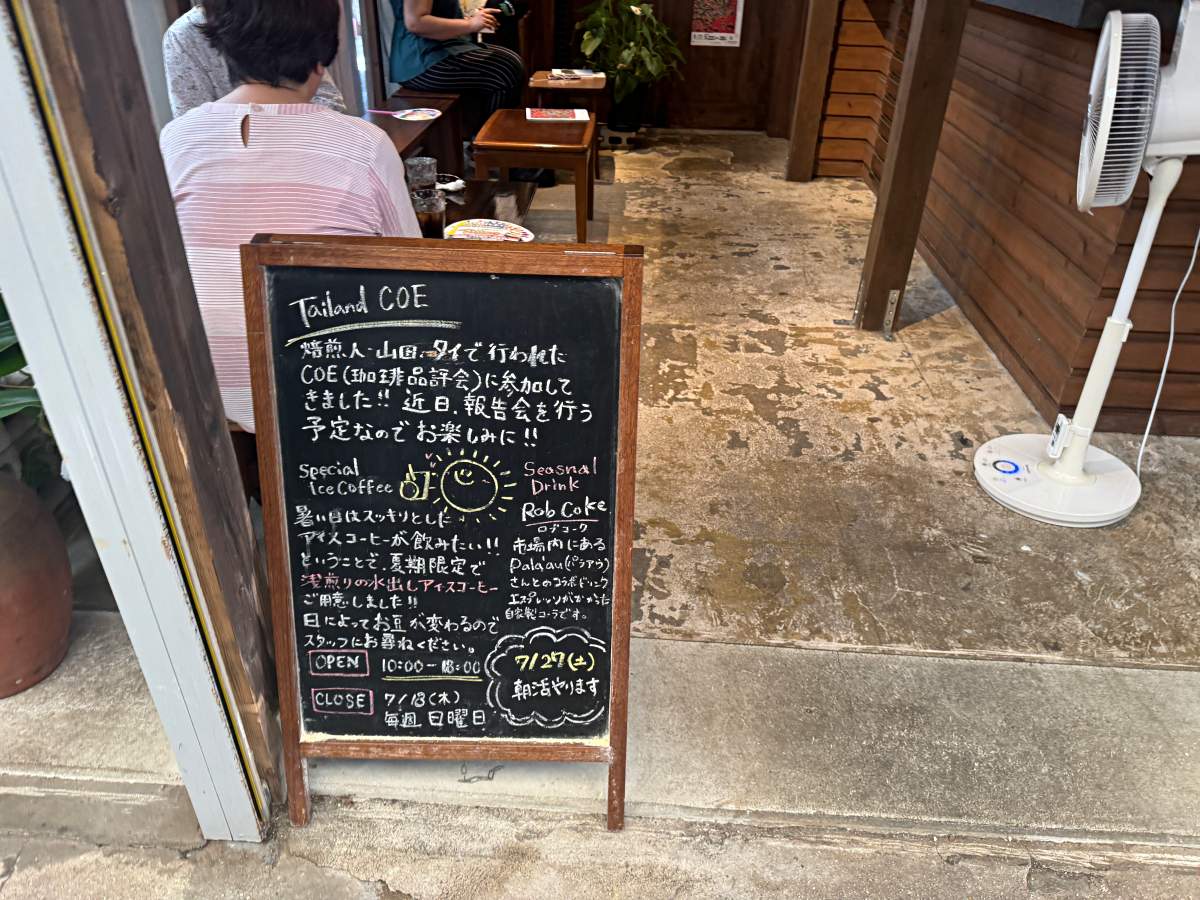 Tailand COE
焙煎人・山田・タイで行われた
COE(珈琲品評会)に参加して
きました!! 近日、報告会を行う
予定なのでお楽しみに!!
Special
ice Coffee
暑い日はスッキリとした
アイスコーヒーが飲みたい!!
ということで、夏期限定で
浅煎りの水出しアイスコーヒー
ご用意しました!!
日によってお豆が変わるので
スタッフにお尋ねください。
Seasnal
Drink
Rob Coke
ロブコーク
市場内にある
Pala'au(パラアウ)
さんとのコラボドリンク
エスプレッソがむかった
自家製コーラです。
OPEN 10:00-18:00
CLOSE 7/18(木)
毎週日曜日
7/27(土)
朝活やります